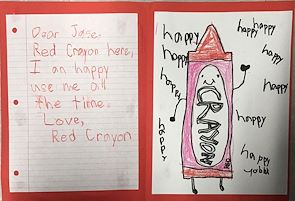 Dear Jase,
Red Crayon here,
I am happy
use me all
the time.
Love,
Red Crayon
happy
happy
happy
happy
happy
happy
happy
happy
happy
happy
happy
CRAYON